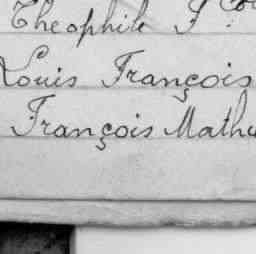 Theophile F
Louis François
François Mathu